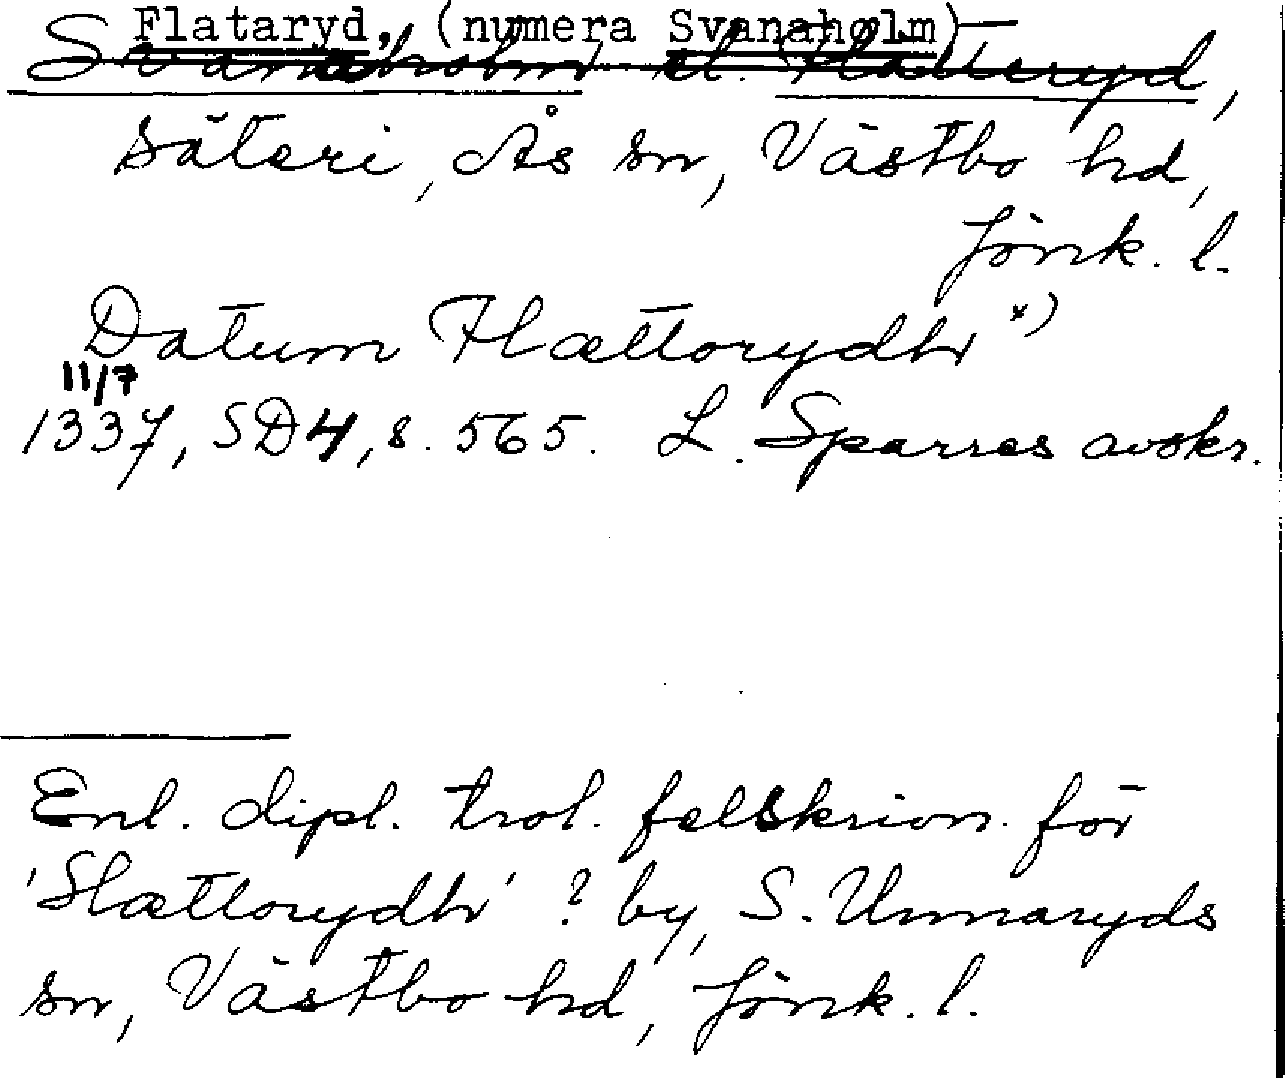 Flataryd, (numera Svanaholm)
Svanaholm el. Flatteryd,
säteri, Ås sn, Västbo hd,
Jönk. l.
Datum Flættorydhr x)
11/7
1337, SD4, s. 565. L. Sparres avskr.
Enl. dipl. trol. felskrivn. för
'Slættorydhr' ? by, S. Unnaryds
sn, Västbo hd, Jönk. l.